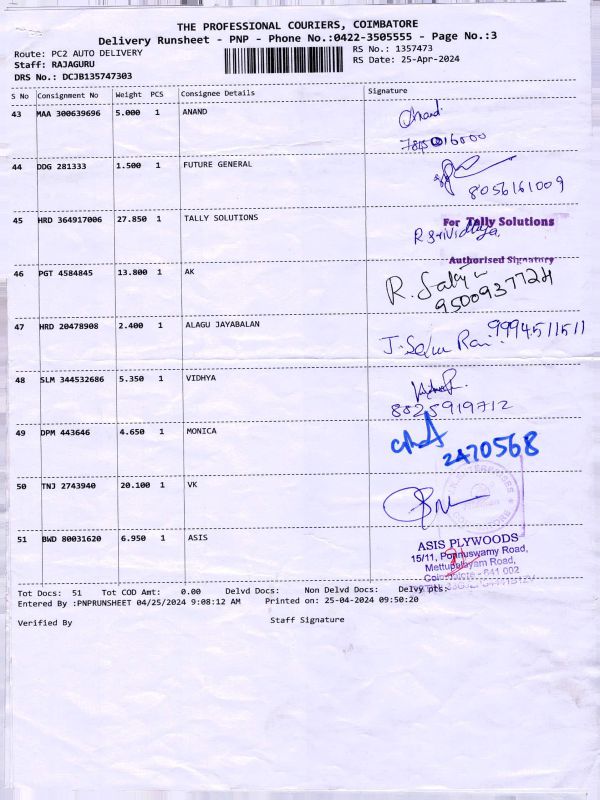 THE PROFESSIONAL COURIERS, COIMBATORE
Delivery Runsheet - PNP - Phone No.:0422-3505555 - Page No.:3
Route: PC2 AUTO DELIVERY RS No.: 1357473
Staff: RAJAGURU RS Date: 25-Apr-2024
DRS No.: DCJB135747303
S No Consignment No Weight PCS Consignee Details Signature
43 MAA 300639696 5.000 1 ANAND Anand
44 DDG 281333 1.500 1 FUTURE GENERAL
8056161009
45 HRD 364917006 27.850 1 TALLY SOLUTIONS For Tally Solutions
R Srividhya
Authorised Signatory
46 PGT 4584845 13.800 1 AK R.
9500937724
47 HRD 20478908 2.400 1 ALAGU JAYABALAN 9994511511
48 SLM 344532686 5.350 1 VIDHYA
8825919712
49 DPM 443646 4.650 1 MONICA
2470568
50 TNJ 2743940 20.100 1 VK
51 BWD 80031620 6.950 1 ASIS ASIS PLYWOODS
15/11, Ponnuswamy Road,
Mettupalayam Road,
Coimbatore - 641 002
Tot Docs: 51 Tot COD Amt: 0.00 Delvd Docs: Non Delvd Docs: Delvy pts:
Entered By :PNPRUNSHEET 04/25/2024 9:08:12 AM Printed on: 25-04-2024 09:50:20
Verified By Staff Signature